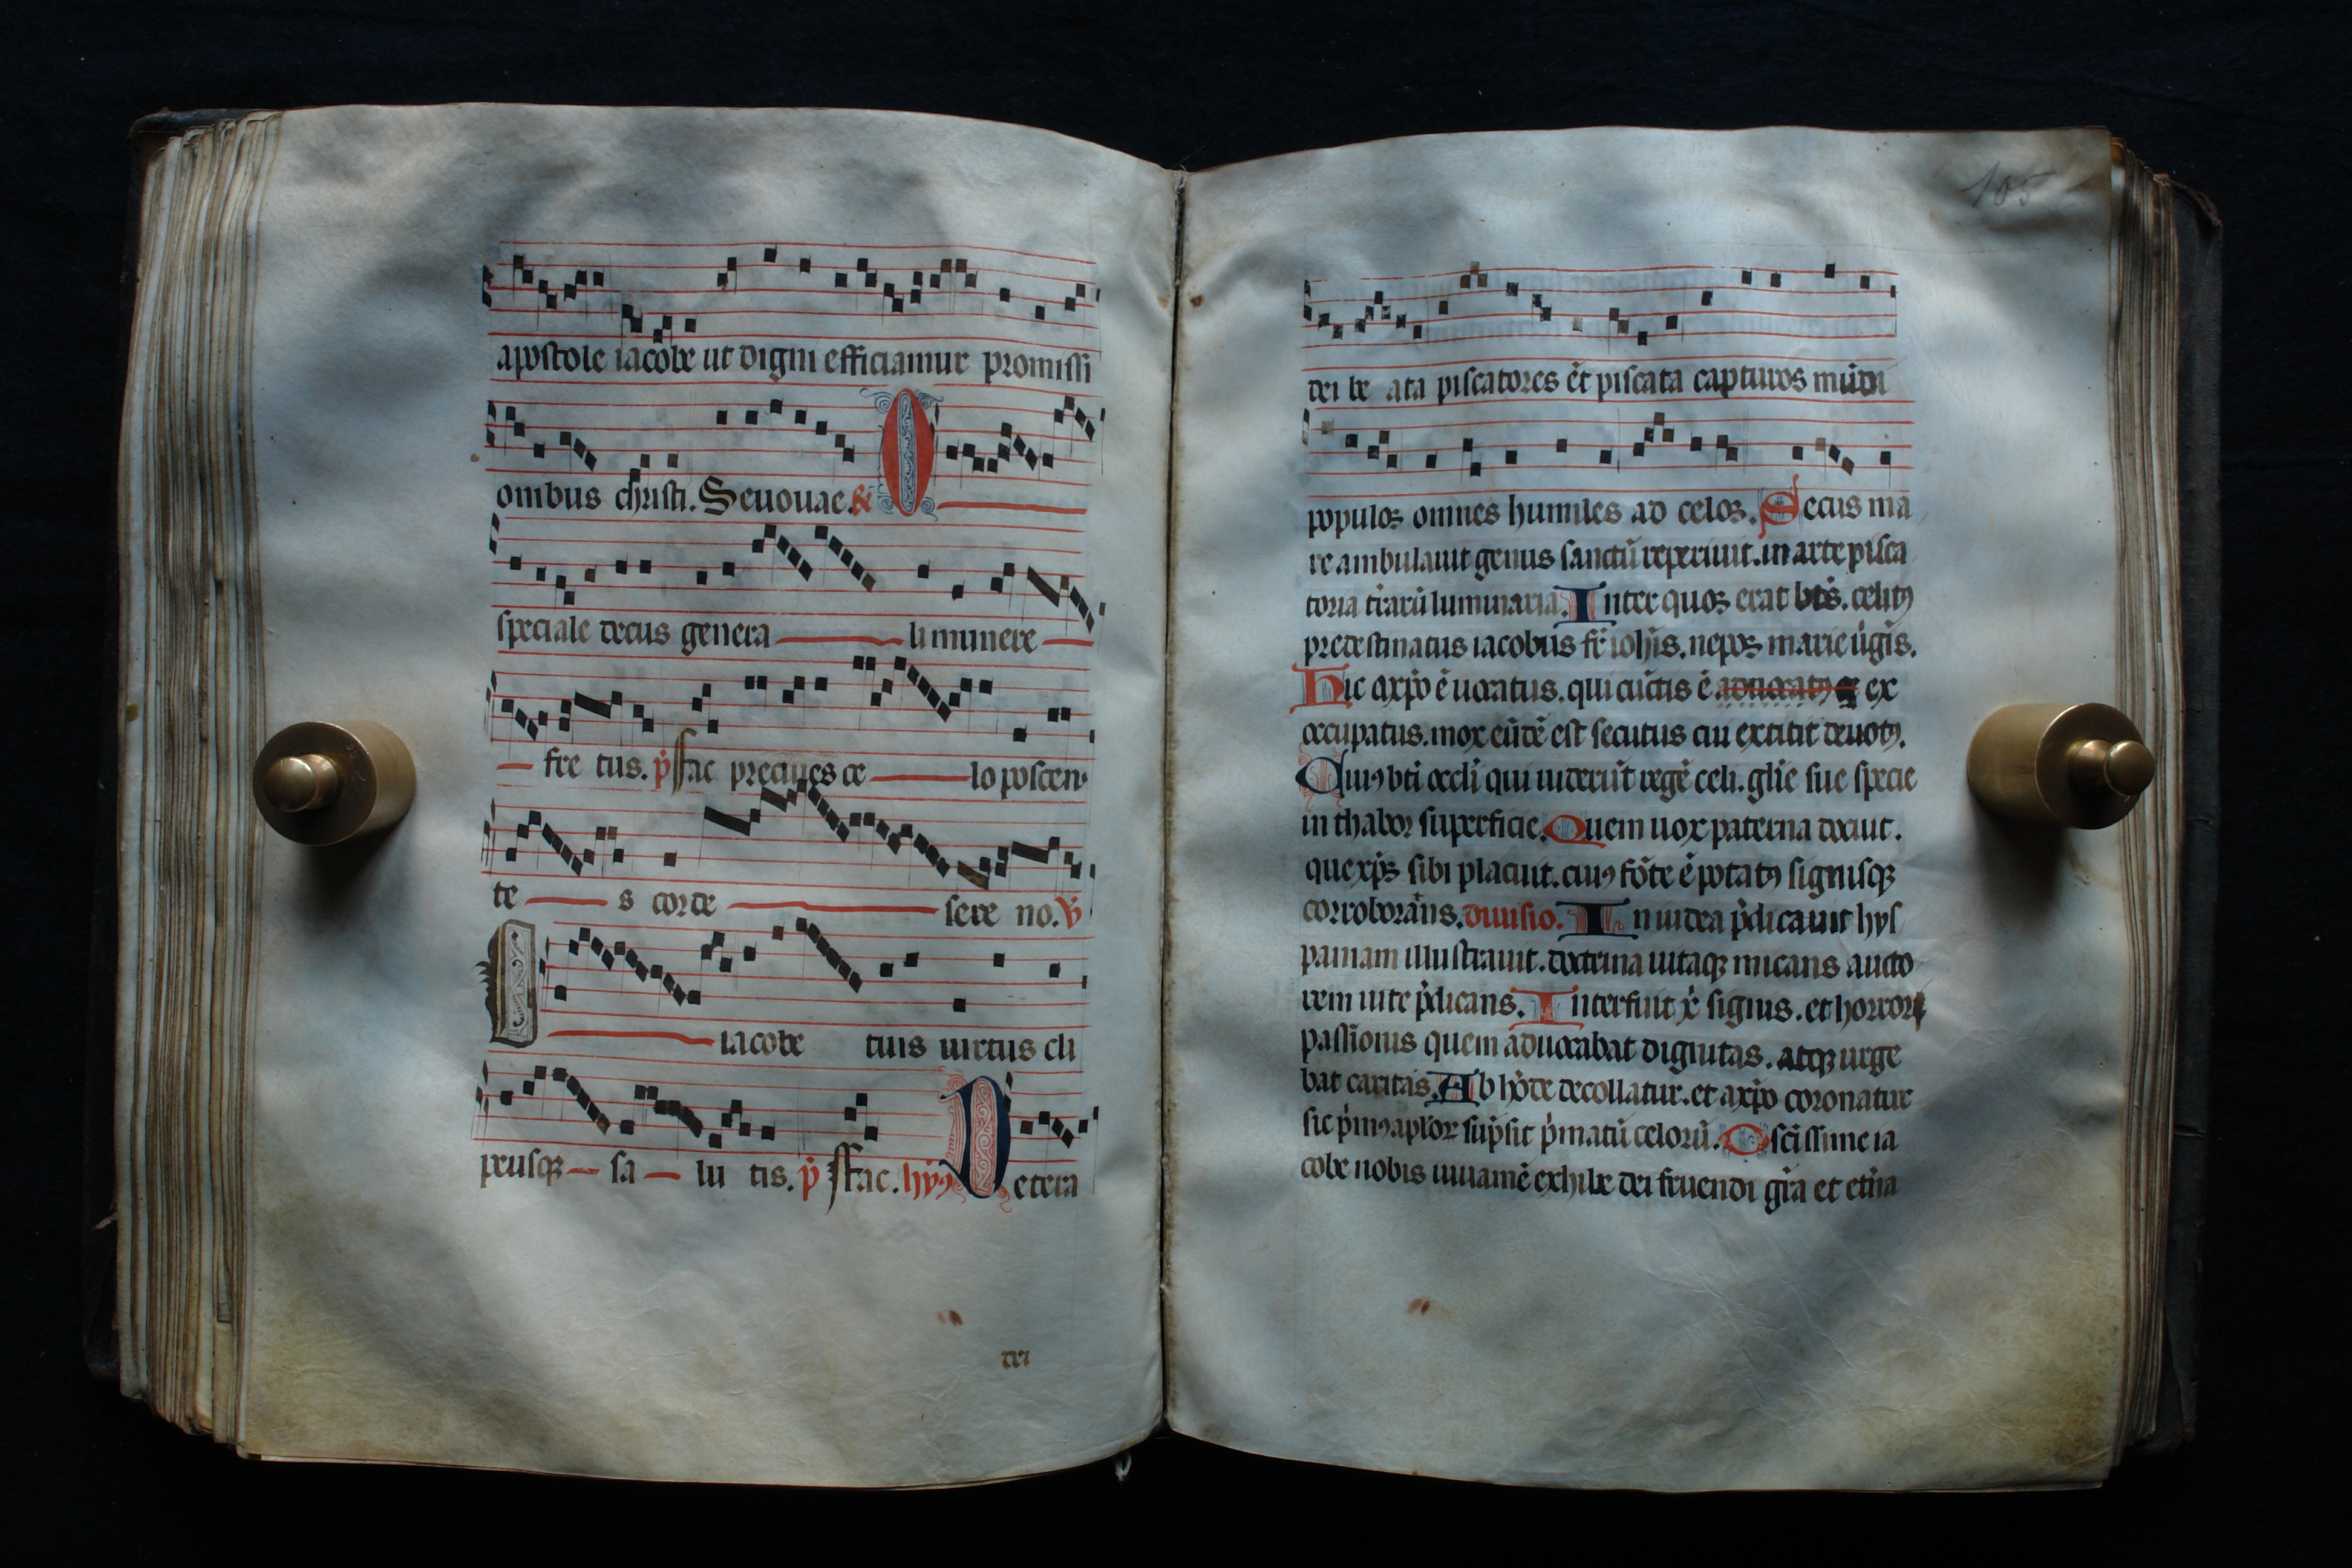 apostole iacobe ut digni efficiamur promissi
onibus christi. Seuouae. R O
speciale decus genera li munere
fre tus. p̃ Fac preciues ce lo poscen
te s corde sere no. ℣
O iacobe tuis uirtus cli
peusqꝫ sa lu tis. p̃ Fac. hyꝰ Letera
dei
105
dei be ata piscatores et piscata capturos mūdi
populos omnes humiles ad celos. Secus ma
re ambulauit genus sanctū reperiuit. in arte pisca
toria trarū luminaria. Inter quos erat bt̄s. celitꝰ
predestinatus iacobus fr̄ ioh̄is. nepos marie ūgis.
Hic axp̄o ē uocatus. qui cūctis ē aduocatꝰ ex
occupatus. mox eūdē est secutus cui extitit deuotꝰ.
Cuiꝰ bti occli qui uiderūt regē celi. gl̄ie sue specie
in thabor superficie. Quem uox paterna docuit.
que xp̄s sibi placuit. cuiꝰ fōte ē potatꝰ signisqꝫ
corroborās. diuisio. In iudea p̄dicauit hys
paniam illustrauit. doctrina uitaqꝫ micans aucto
rem uite p̄dicans. Interfuit xp̄ signis. et horror
passionis quem aduocabat dignitas. atqꝫ urge
bat caritas. Ab hōde decollatur. et axp̄o coronatur
sic p̄mꝰ aplor̄ sūpsit p̄matū celorū. O scissime ia
cobe nobis iuuamē exhibe dei fruendi gr̄a et et̄na